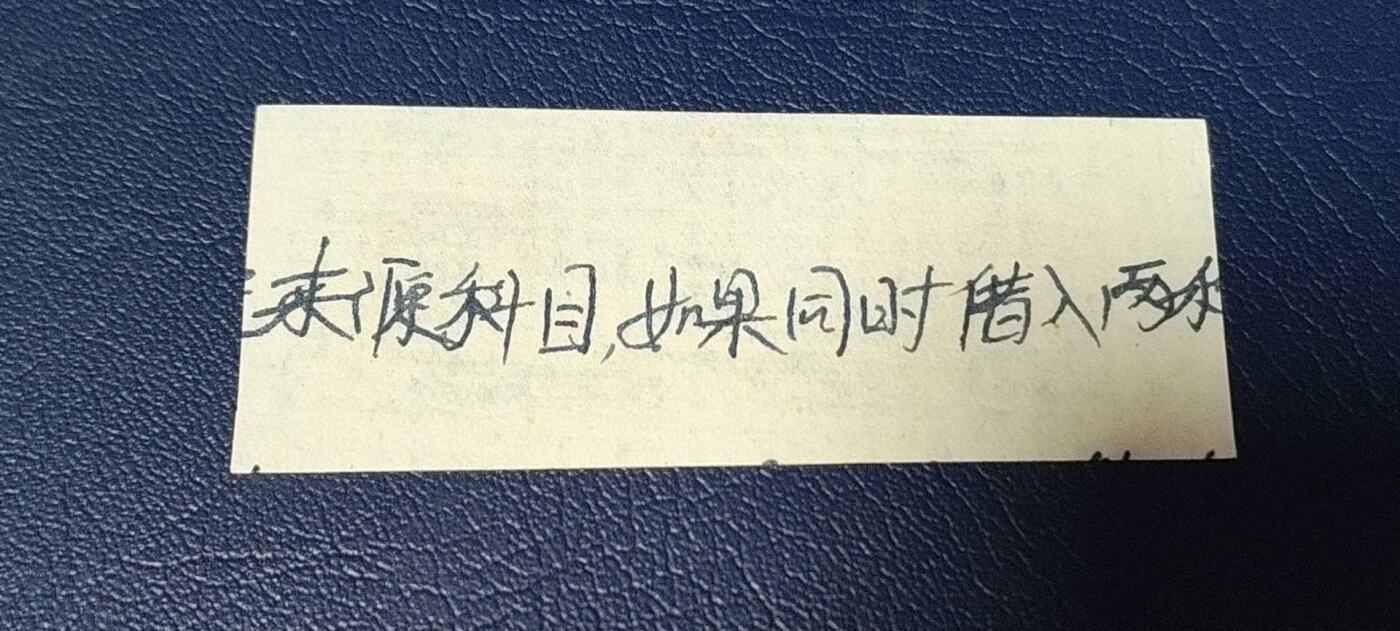 来源科目,如果同时借入两